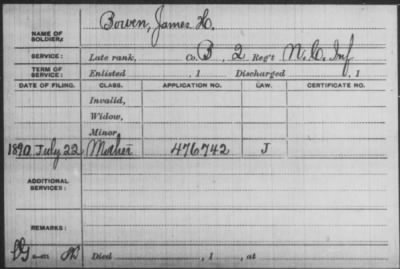 Bowen, James H.
NAME OF SOLDIER:
SERVICE: Late rank, Co. B, 2 Reg't N.C. Inf
TERM OF SERVICE: Enlisted , 1 Discharged , 1
DATE OF FILING. CLASS. APPLICATION NO. LAW. CERTIFICATE NO.
Invalid,
Widow,
Minor,
1890 July 22 Mother 476742 J
ADDITIONAL SERVICES:
REMARKS:
Died , 1 , at